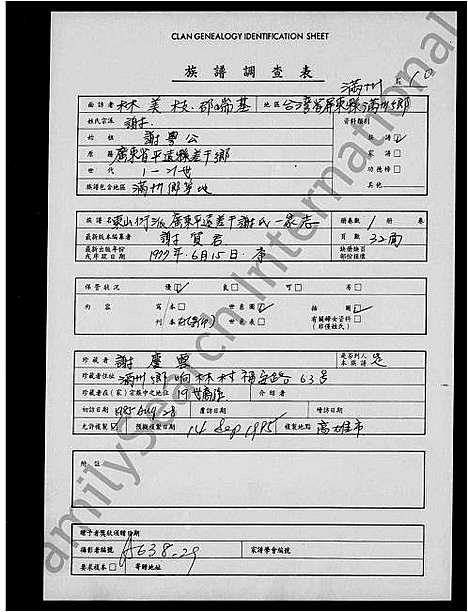 CLAN GENEALOGY IDENTIFICATION SHEET
族譜調查表
滿州 10
面訪者 林美枝.邱瑞基 地區 台灣省屏東縣滿州鄉
姓氏宗派 謝 資料類別
始祖 謝粵公 族譜
原籍 廣東省平遠縣差干鄉 家譜
世代 1—21世 功德榜
族譜包含地區 滿州鄉等地 其他
族譜名 東山衍派廣東平遠差干謝氏一家志 冊卷數 1 冊 卷
最新版本編纂者 謝貿君 頁數 32面
最新出版年份或序跋日期 1977.6月15日 缺損缺頁部份推標
保管狀況 優 良 可 劣
內容 寫本 世系圖 插圖
刊本 世系表 有關婦女資料(非僅姓氏)
珍藏者 謝慶雲 是否列入本族譜 是
珍藏者住址 滿州鄉响林村福安路63号
珍藏者在(家)宗族中之地位 19世裔孫 介紹者
初訪日期 復訪日期 再訪日期
允許複製 預擬複製日期 14 Sep 1985 複製地點 高雄市
附註
贈予者獎狀頒贈日期
攝影者編號 A638-29 家譜學會編號
要求複本 寄贈地址
FamilySearch International